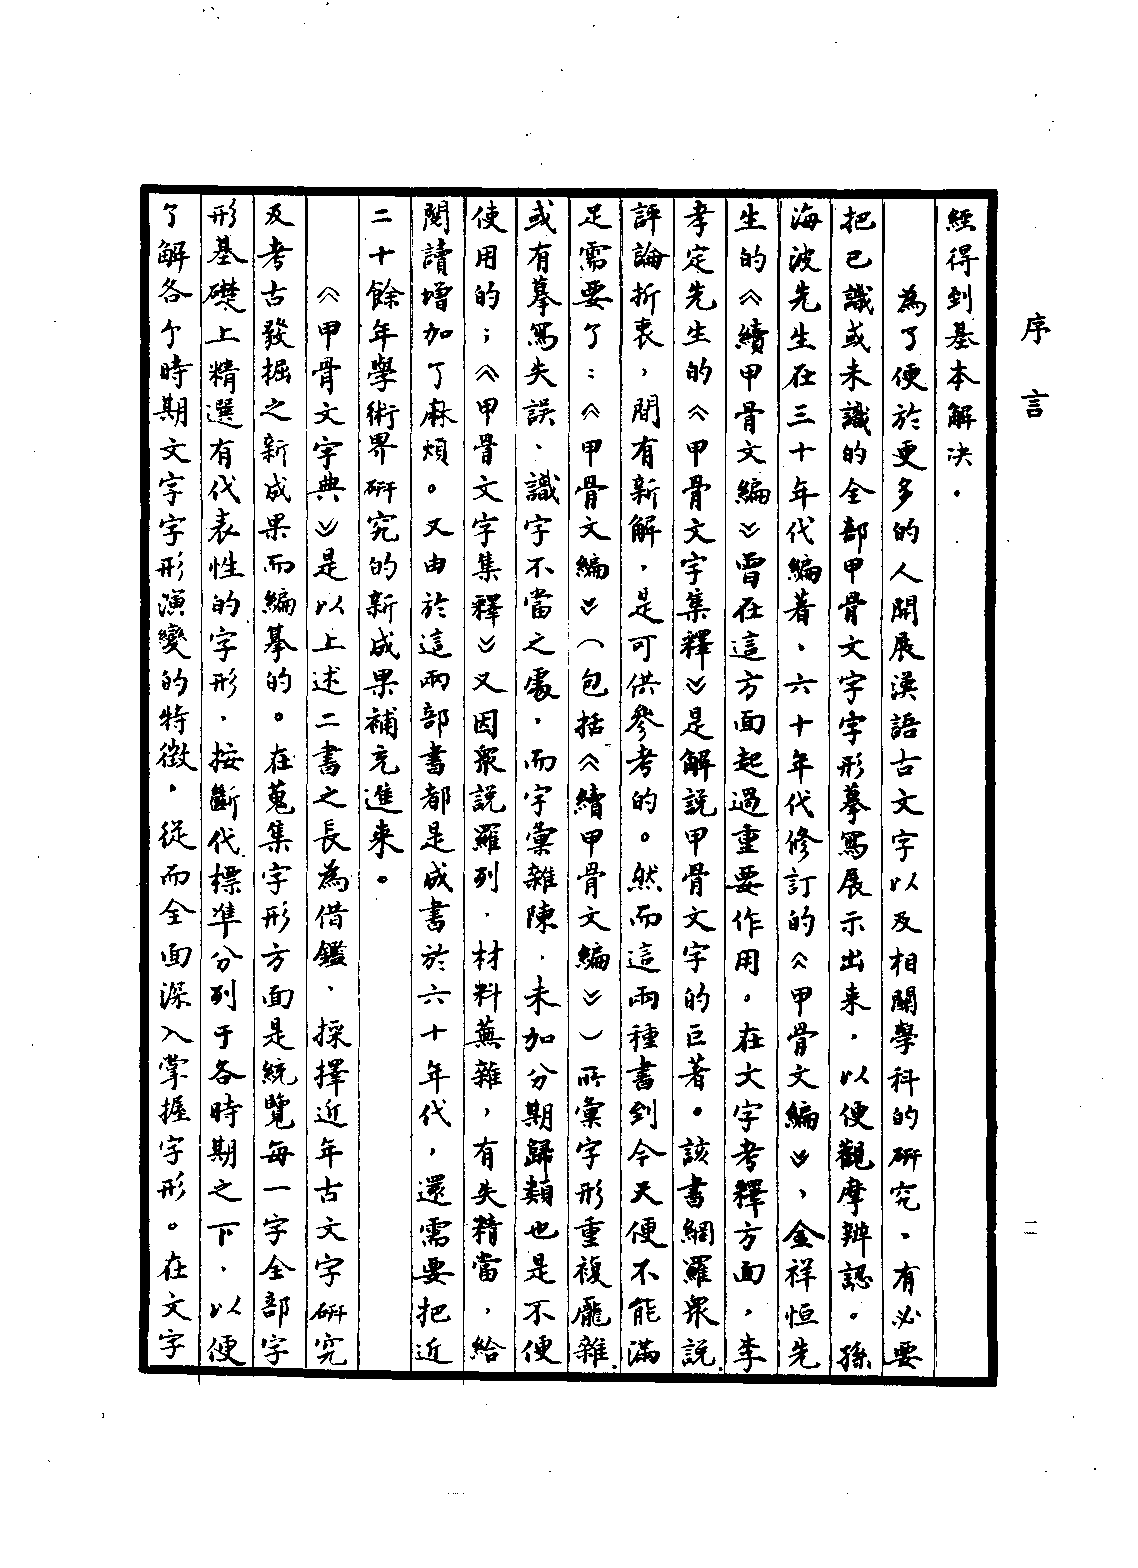 序言
二
經得到基本解決。
為了便於更多的人開展漢語古文字以及相關學科的研究，有必要
把已識或未識的全部甲骨文字字形摹寫展示出来，以便觀摩辨認。孫
海波先生在三十年代編著、六十年代修訂的《甲骨文編》，金祥恒先
生的《續甲骨文編》曾在這方面起過重要作用。在文字考釋方面，李
孝定先生的《甲骨文字集釋》是解説甲骨文字的巨著。該書網羅衆説，
評論折衷，間有新解，是可供參考的。然而這兩種書到今天便不能滿
足需要了：《甲骨文編》（包括《續甲骨文編》）所彙字形重複龐雜，
或有摹寫失誤、識字不當之處，而字彙雜陳，未加分期歸類也是不便
使用的；《甲骨文字集釋》又因衆説羅列，材料蕪雜，有失精當，給
閱讀增加了麻煩。又由於這兩部書都是成書於六十年代，還需要把近
二十餘年學術界研究的新成果補充進来。
《甲骨文字典》是以上述二書之長為借鑑，採擇近年古文字研究
及考古發掘之新成果而編摹的。在蒐集字形方面是統覽每一字全部字
形基礎上精選有代表性的字形，按斷代標準分列于各時期之下，以便
了解各个時期文字字形演變的特徵，從而全面深入掌握字形。在文字